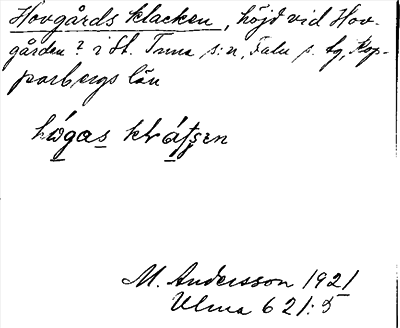 Hovgårds klacken, höjd vid Hov-
gården? i St. Tuna s:n, Falu s. tg, Kop-
parbergs län
hógas
M. Andersson 1921
Ulma 621:5